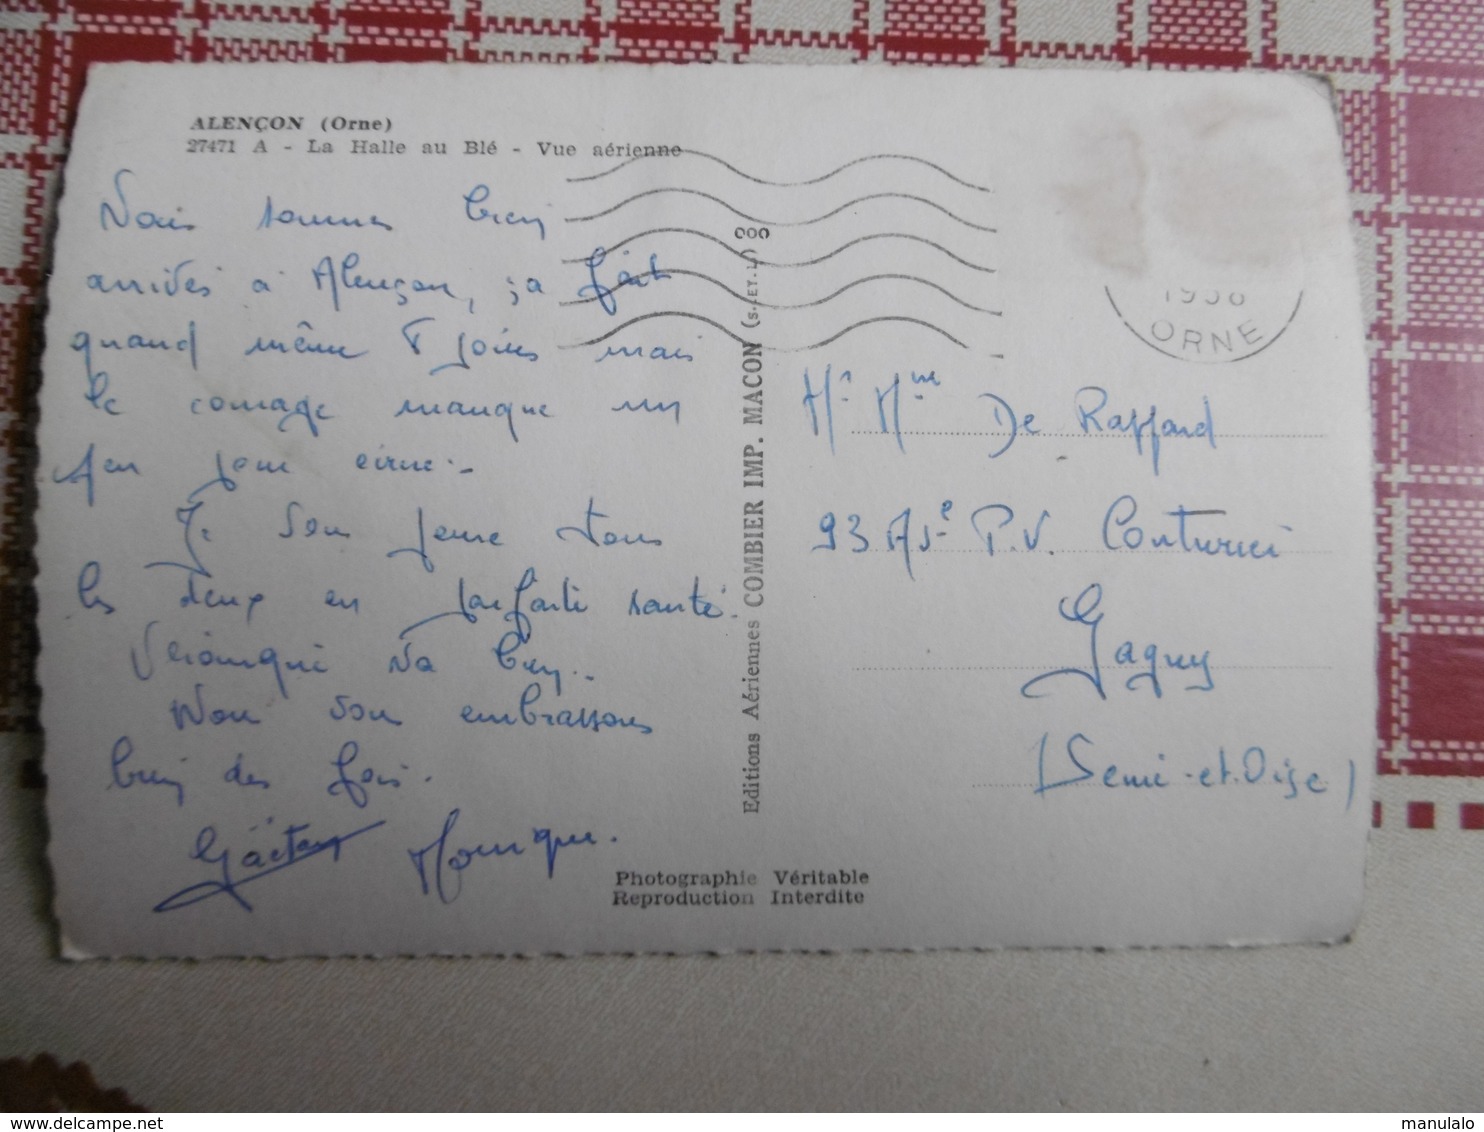 ALENÇON (Orne)
27471 A - La Halle au Blé - Vue aérienne
Nous sommes bien
arrivés à Alençon, ça fait
quand même 8 jours mais
le courage manque un
peu pour écrire.
Je vous pense tous
les deux en parfaite santé.
Véronique va bien..
Nous vous embrassons
bien des fois.
Gaëtan Monique.
Editions Aériennes COMBIER IMP. MACON (S.-ET-L.)
000
Photographie Véritable
Reproduction Interdite
ORNE
Mr Mme De Raffard
93 Ave P.V. Couturier
Gagny
(Seine-et-Oise)
manulalo